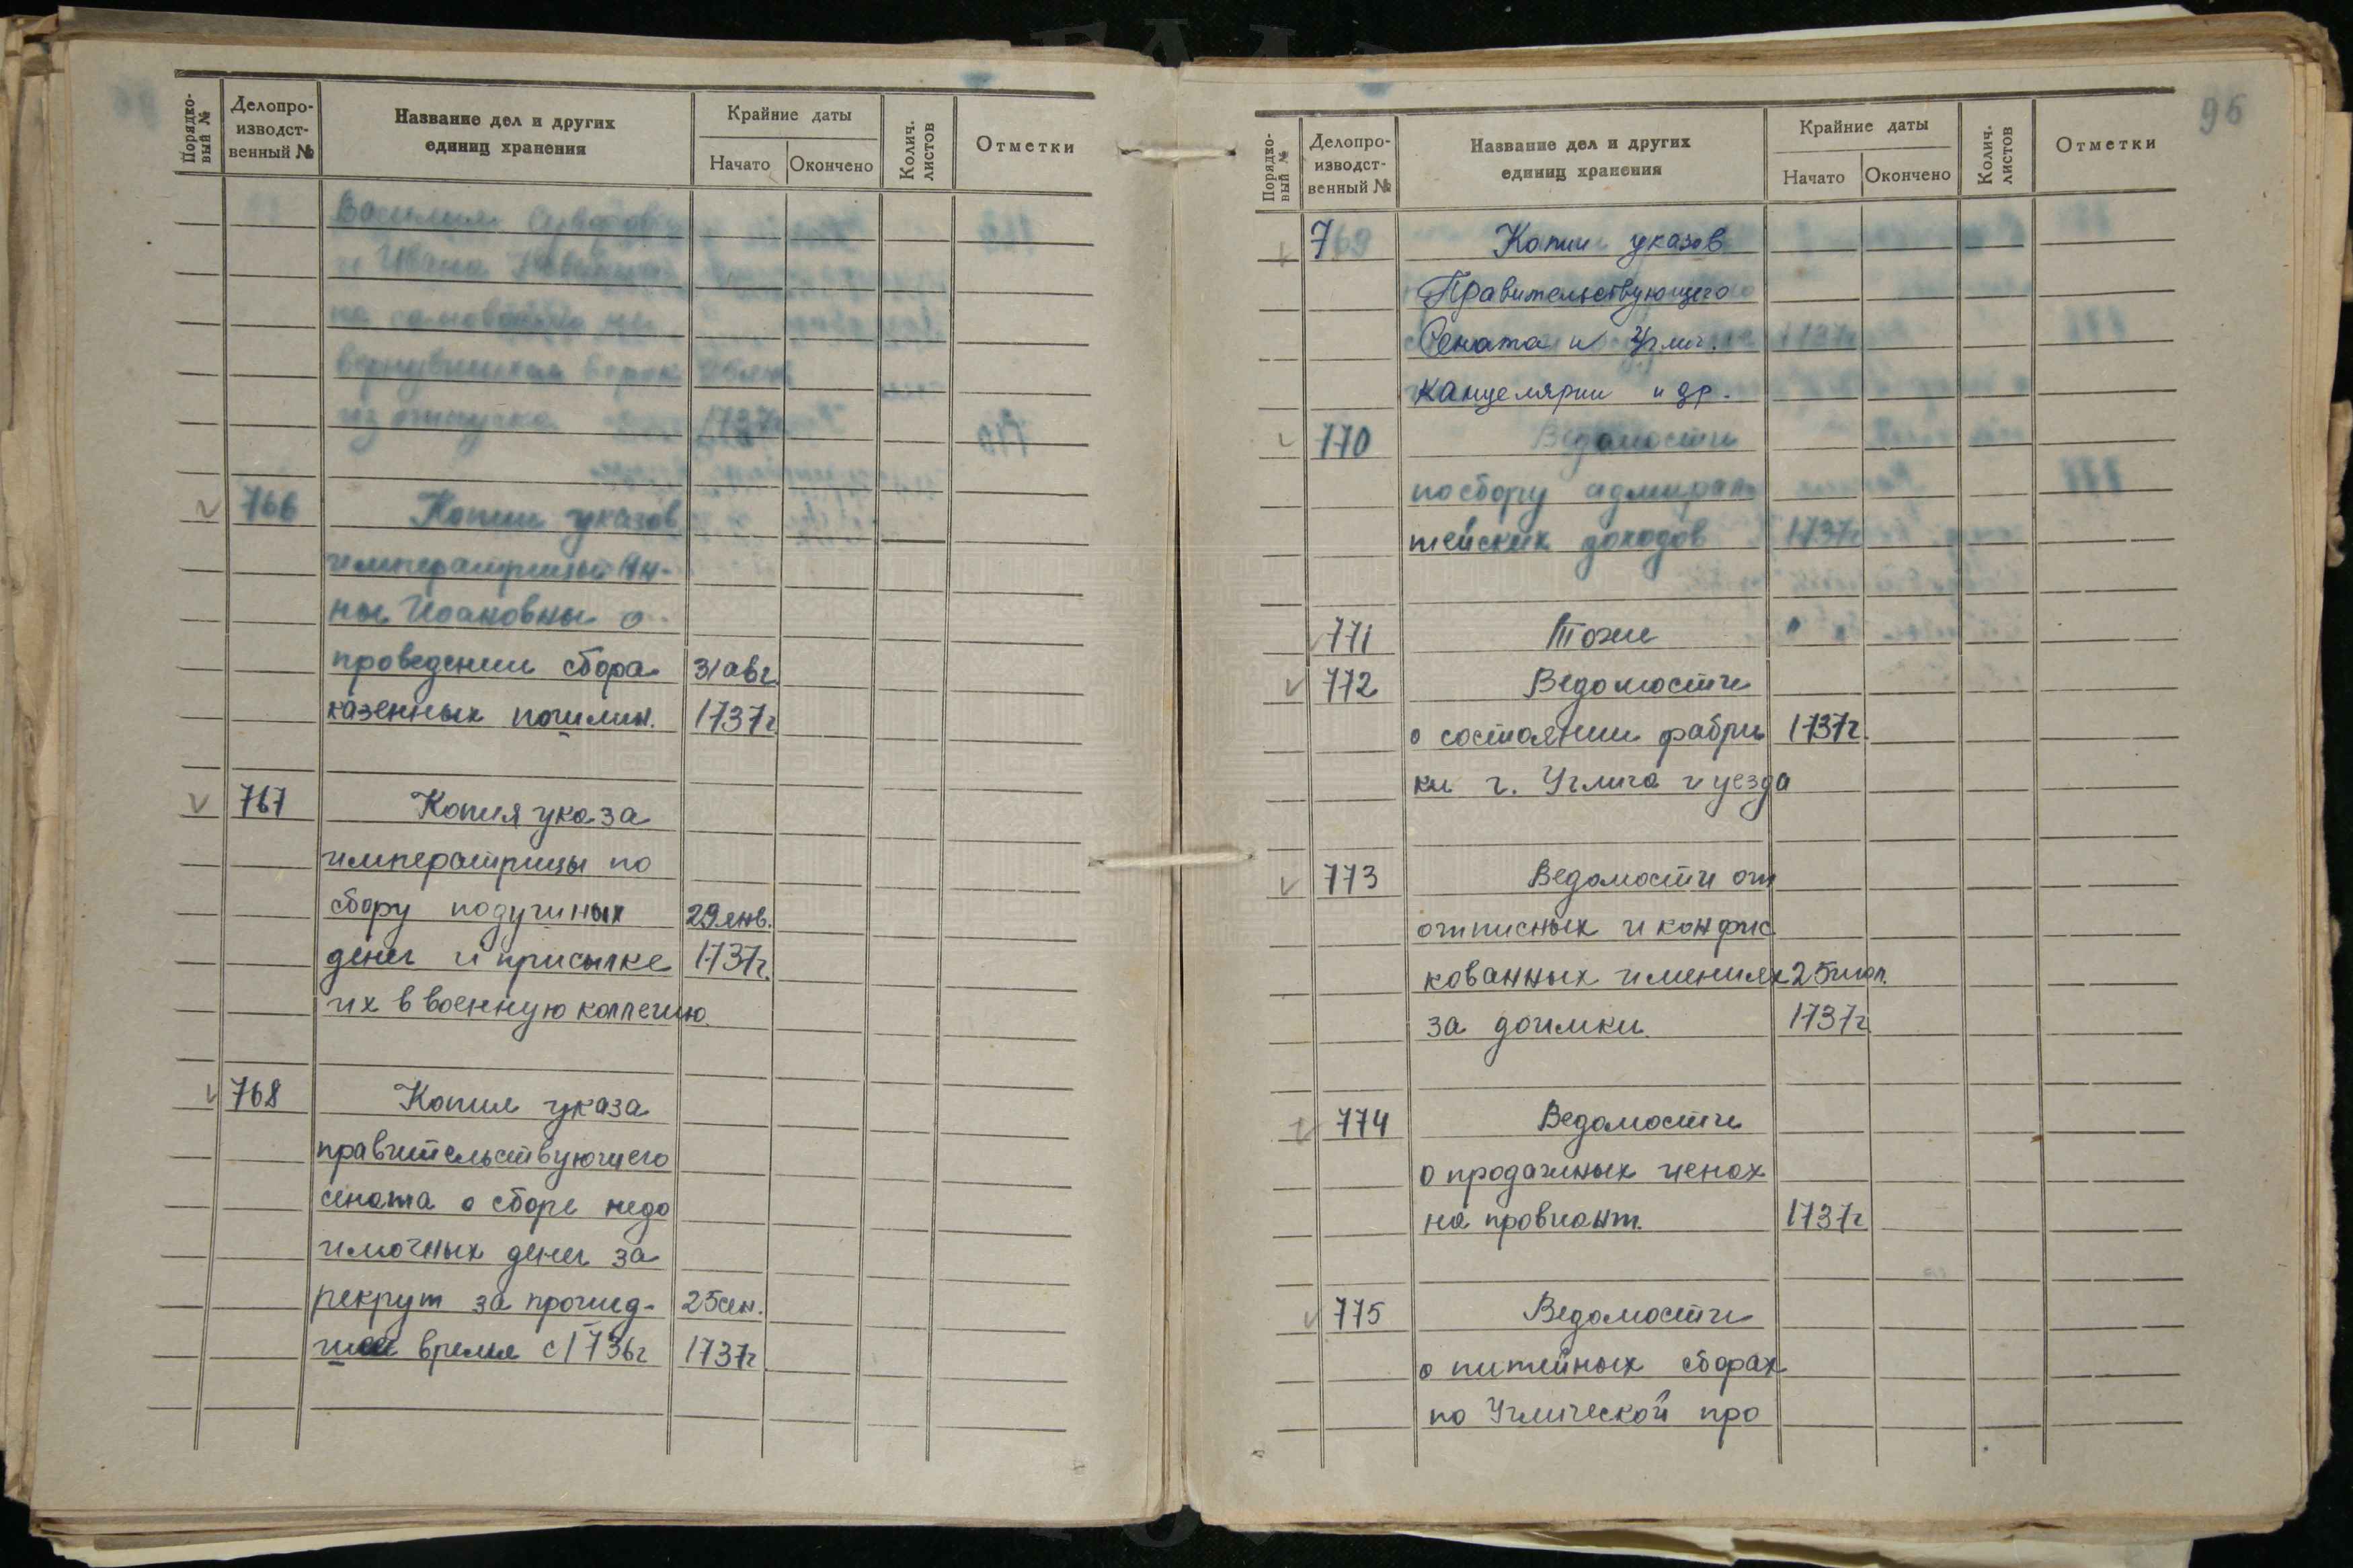 Порядковый №
Делопроизводственный №
Название дел и других единиц хранения
Крайние даты
Начато
Окончено
Колич. листов
Отметки
Василия
и Ивана
на самовольно не
вернувшихся в срок
из отпуска 1737г
766 Копии указов
императрицы Ан-
ны Иоановны о
проведении сбора 31 авг.
казенных пошлин. 1737г.
767 Копия указа
императрицы по
сбору подушных 29 янв.
денег и присылке 1737г.
их в военную коллегию.
768 Копия указа
правительствующего
сената о сборе недо
имочных денег за
рекрут за прошед- 25 сен.
шее время с 1736г 1737г.
95
Порядковый №
Делопроизводственный №
Название дел и других единиц хранения
Крайние даты
Начато
Окончено
Колич. листов
Отметки
769 Копии указов
Правительствующего
Сената и Углич. 1737г
канцелярии и др.
770 Ведомости
по сбору адмирал
тейских доходов 1737г
771 Тоже "
772 Ведомости
о состоянии фабри 1737г.
ки г. Углича и уезда
773 Ведомости от
отписных и конфис
кованных имениях 25 июл.
за доимки. 1737г
774 Ведомости
о продажных ценах
на провиант. 1737г
775 Ведомости
о питейных сборах
по Углической про